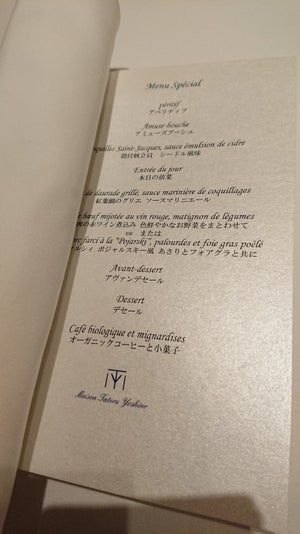 Menu Spécial
péritif
アペリティフ
Amuse-bouche
アミューズブーシュ
oquilles Saint-Jacques, sauce émulsion de cidre
殻付帆立貝 シードル風味
Entrée du jour
本日の前菜
de daurade grillé, sauce marinière de coquillages
紅葉鯛のグリエ ソースマリニエール
e bœuf mijotée au vin rouge, matignon de légumes
肉の赤ワイン煮込み 色鮮やかなお野菜をまとわせて
ou または
rc farci à la "Pojarski", palourdes et foie gras poêlé
ァルシィ ポジャルスキー風 あさりとフォアグラと共に
Avant-dessert
アヴァンデセール
Dessert
デセール
Café biologique et mignardises
オーガニックコーヒーと小菓子
Maison Tateru Yoshino